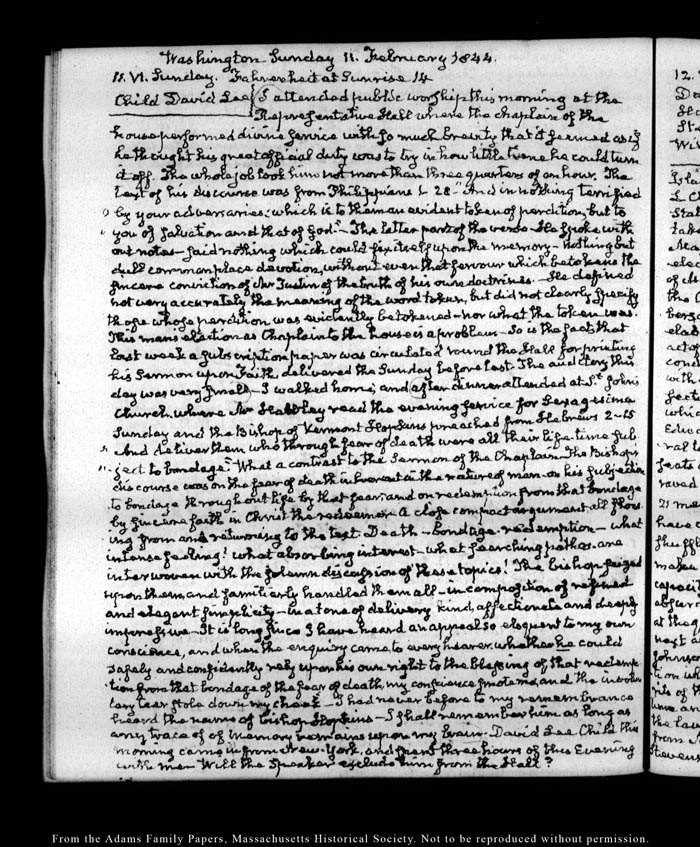 Washington Sunday 11. February 1844.
11. VI. Sunday. Fahrenheit at Sunrise 14
Child David Lee I attended public worship this morning at the
Representative Hall where the chaplain of the
house performed divine service with so much brevity that it seemed as if
he thought his great official duty was to try in how little time he could turn
it off. The whole job took him not more than three quarters of an hour. The
text of his discourse was from Philippians 1. 28 "And in nothing terrified
" by your adversaries; which is to them an evident token of perdition, but to
" you of salvation and that of God." The latter part of the verse. He spoke with
out notes - said nothing which could fix itself upon the memory - nothing but
dull common place devotion, without even that fervour which betokens the
sincere conviction of Mr Tustin of the truth of his own doctrines. He defined
not very accurately the meaning of the word token, but did not clearly specify
those whose perdition was evidently betokened - nor what the token was.
This man's election as Chaplain to the house is a problem - So is the fact that
last week a subscription paper was circulated round the Hall for printing
his Sermon upon Faith delivered the Sunday before last. The auditory this
day was very small - I walked home; and after dinner attended at St. John's
Church, where Mr Hawley read the evening service for Sexagesima
Sunday and the Bishop of Vermont Hopkins preached from Hebrews 2-15
" And deliver them who through fear of death were all their life-time sub,
" ject to bondage" What a contrast to the Sermon of the Chaplain. The Bishop's
discourse was on the fear of death inherent in the nature of man - on his subjection
to bondage throughout life by that fear; and on redemption from that bondage
by sincere faith in Christ the redeemer. A close compact argument all flow
ing from and returning to the text. Death - bondage - redemption - what
intense feeling! what absorbing interest - what searching pathos are
interwoven with the solemn discussion of these topics! The bishop seized
upon them, and familiarly handled them all - in composition of refined
and elegant simplicity - in a tone of delivery kind, affectionate and deeply
impressive - It is long since I have heard an appeal so eloquent to my own
conscience, and when the enquiry came to every hearer whether he could
safely and confidently rely upon his own right to the blessing of that redemp
tion from that bondage of the fear of death, my conscience smote me, and the involun
tary tear stole down my cheek - I had never before to my remembrance
heard the name of bishop Hopkins - I shall remember him as long as
any trace of of memory remains upon my brain. David Lee Child this
morning came in from New-York, and spent three hours of this Evening
with me - Will the Speaker exclude him from the Hall?
12.
From the Adams Family Papers, Massachusetts Historical Society. Not to be reproduced without permission.